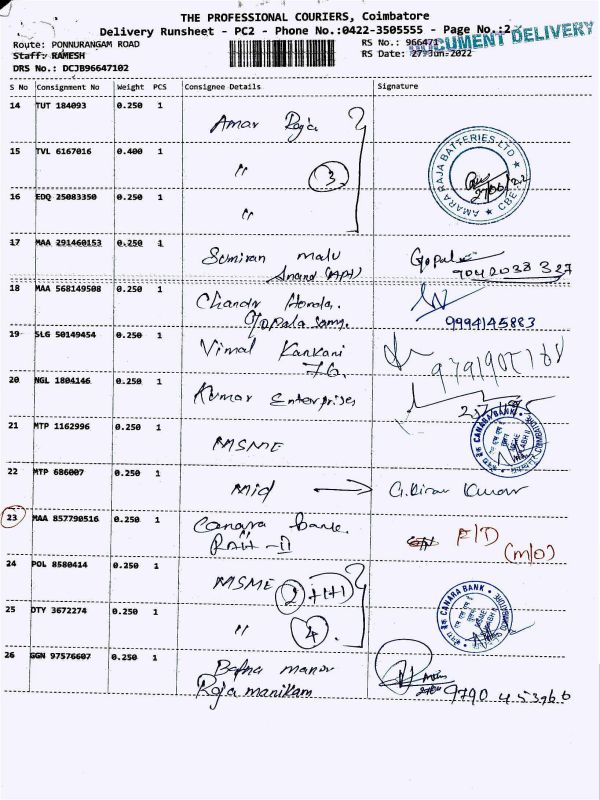 THE PROFESSIONAL COURIERS, Coimbatore
Delivery Runsheet - PC2 - Phone No.:0422-3505555 - Page No.:2
DOCUMENT DELIVERY
Route: PONNURANGAM ROAD
RS No.: 966471
Staff: RAMESH
RS Date: 27-Jun-2022
DRS No.: DCJB96647102
S No Consignment No Weight PCS Consignee Details Signature
14 TUT 184093 0.250 1 Amar Raja
15 TVL 6167016 0.400 1 " 3
AMARA RAJA BATTERIES LTD ★ CBE ★
16 EDQ 25083350 0.250 1 "
17 MAA 291460153 0.250 1 Sumiran malu Gopal
Anand (Apt) 9042038327
18 MAA 568149508 0.250 1 Chandr Honda.
Gopala Samy. 9994145883
19 SLG 50149454 0.250 1 Vimal Kankani
20 NGL 1804146 0.250 1 Kumar Enterprises
21 MTP 1162996 0.250 1 MSME
CANARA BANK
22 MTP 686007 0.250 1 Mid → G.Kiran Kumar
23 MAA 857790516 0.250 1 Canara bank. F/D
RAH-II (m/o)
24 POL 8580414 0.250 1 MSME 2+1+1
CANARA BANK COIMBATORE
25 DTY 3672274 0.250 1 " 4.
26 GGN 97576607 0.250 1 Bafna manor
Raja manikam